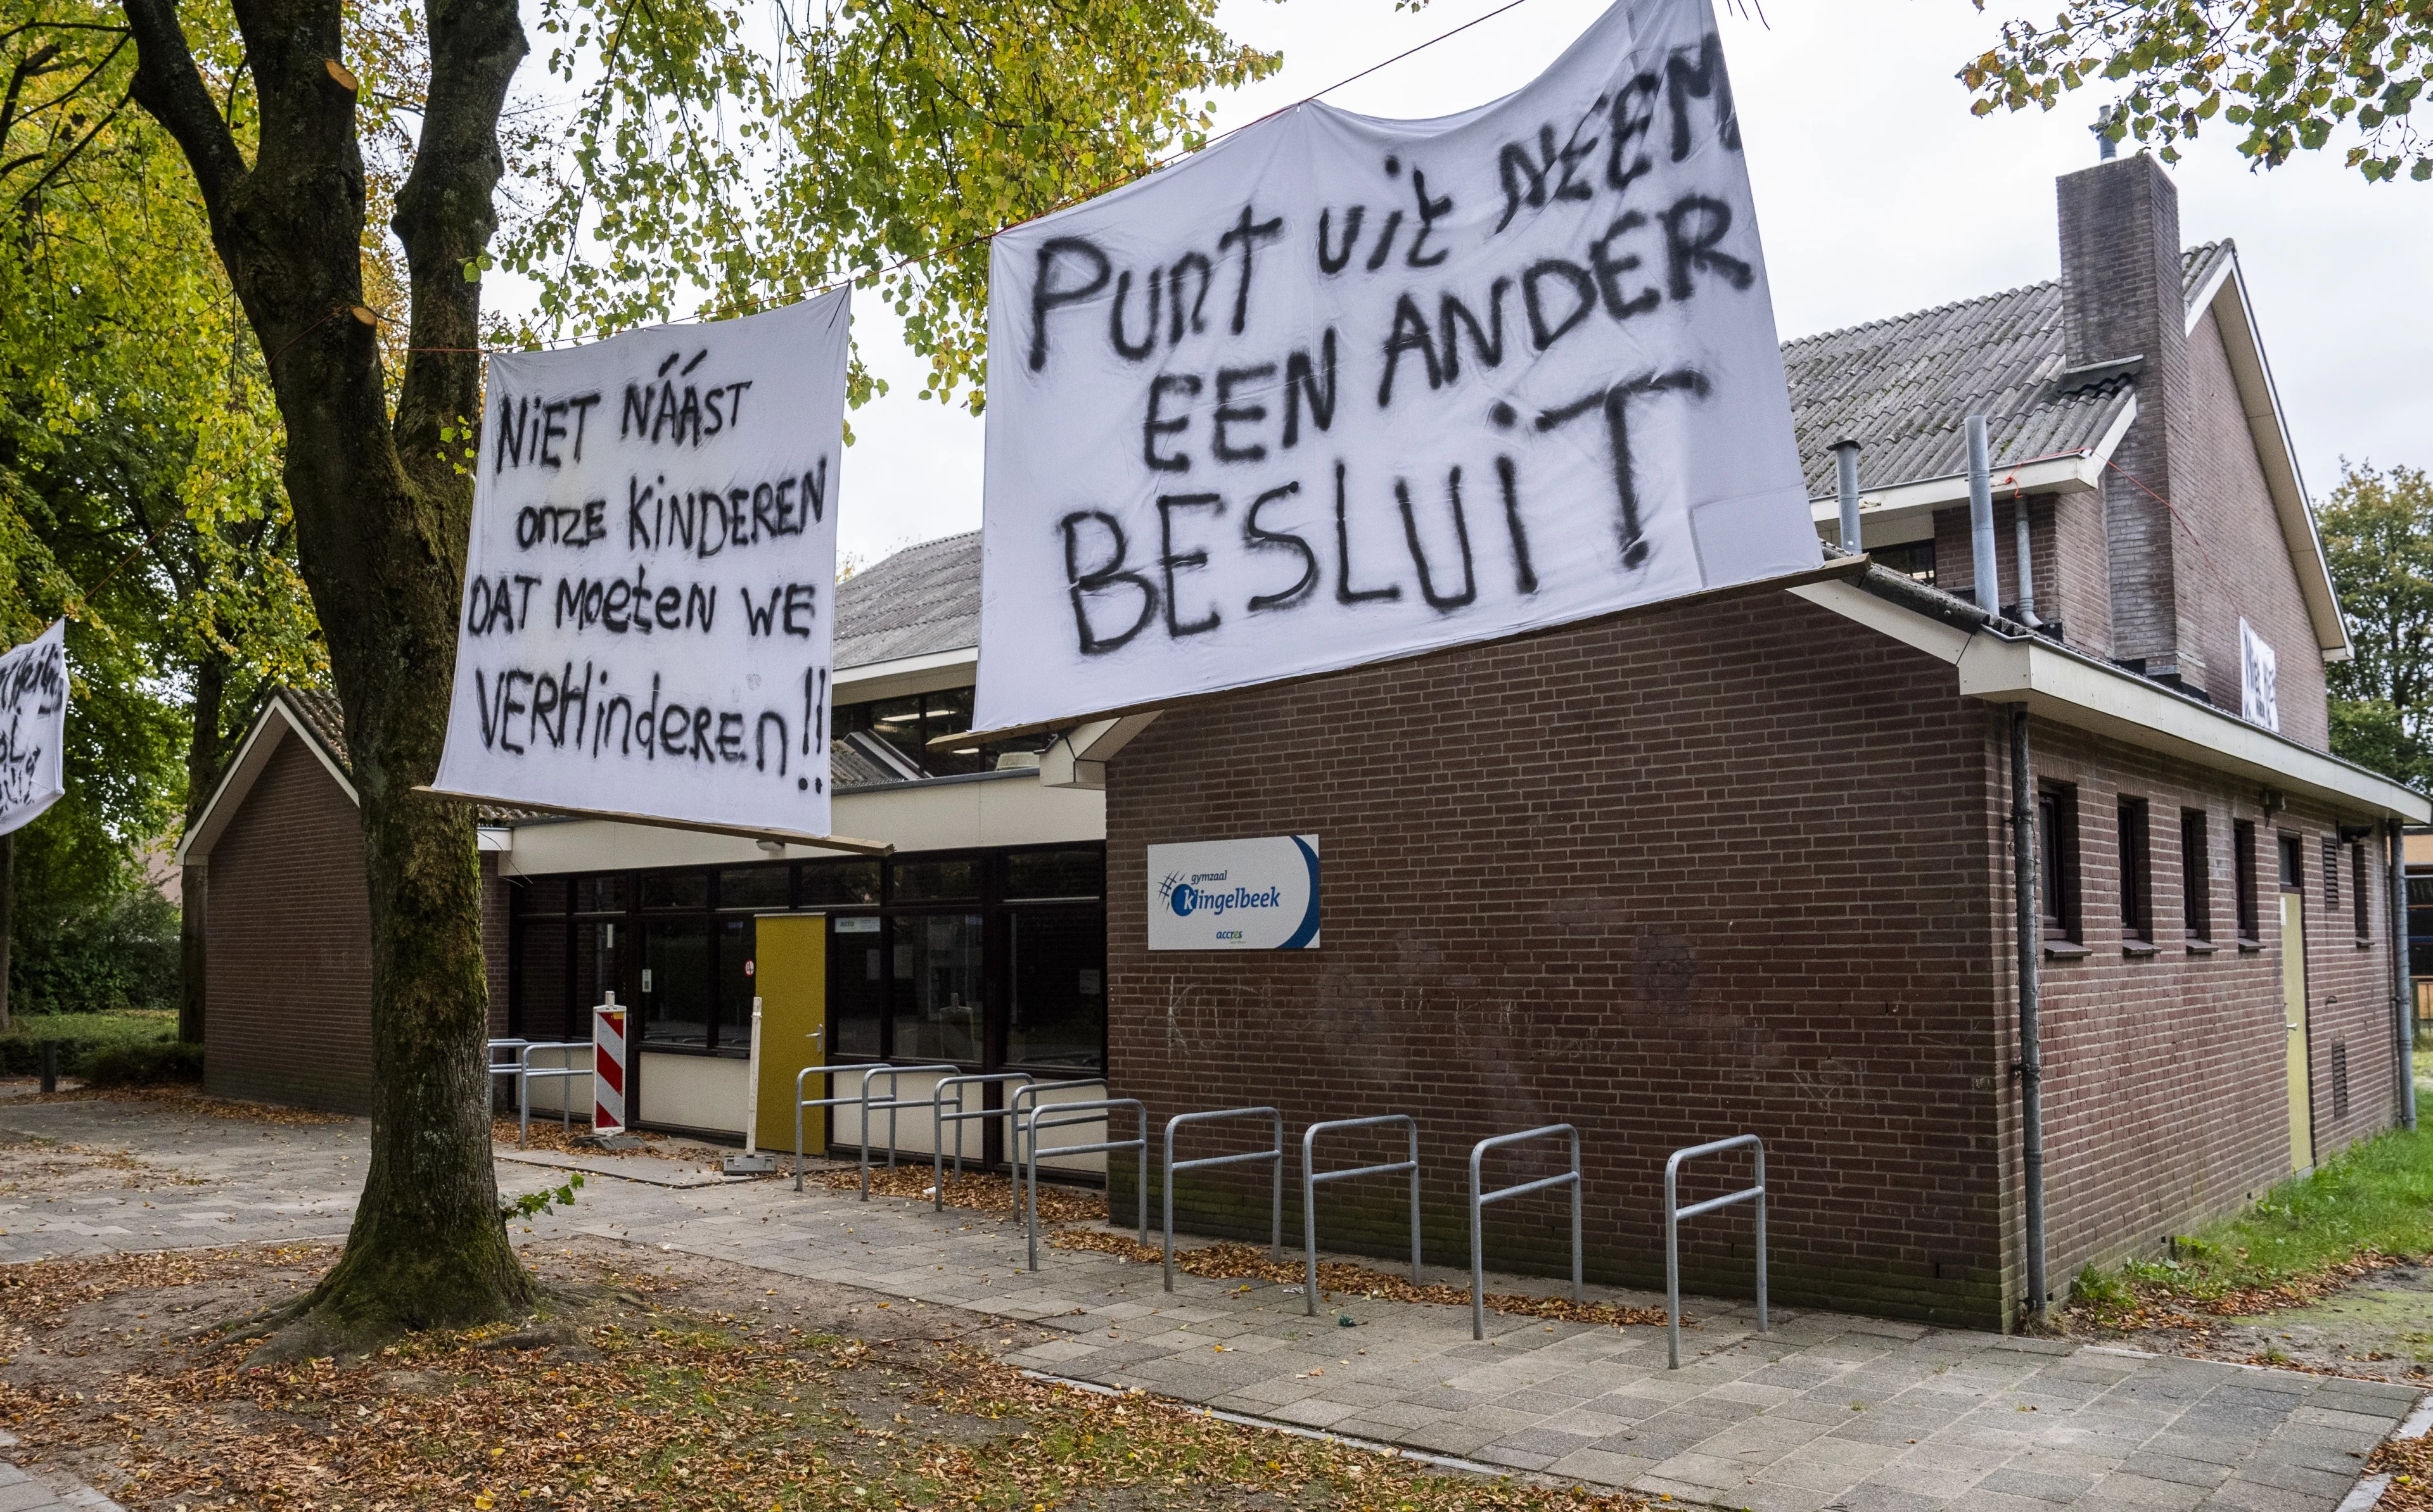 NiET NÁÁST
onze KiNDEREN
DAT MoeteN WE
VERHinderen!!
Punt uit NEEM
EEN ANDER
BESLUiT
gymzaal
klingelbeek
accres